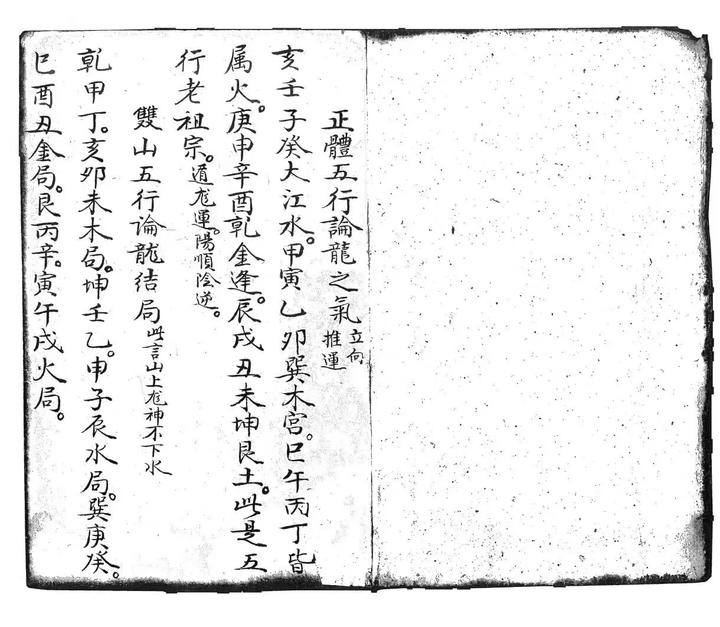 正體五行論龍之氣 立向推運
亥壬子癸大江水。甲寅乙卯巽木宫。巳午丙丁皆
属火。庚申辛酉乾金逢。辰戌丑未坤艮土。此是五
行老祖宗。道龙運。陽順陰逆。
雙山五行論龍结局 此言山上龙神不下水
乾甲丁。亥卯未木局。坤壬乙。申子辰水局。巽庚癸。
巳酉丑金局。艮丙辛。寅午戌火局。